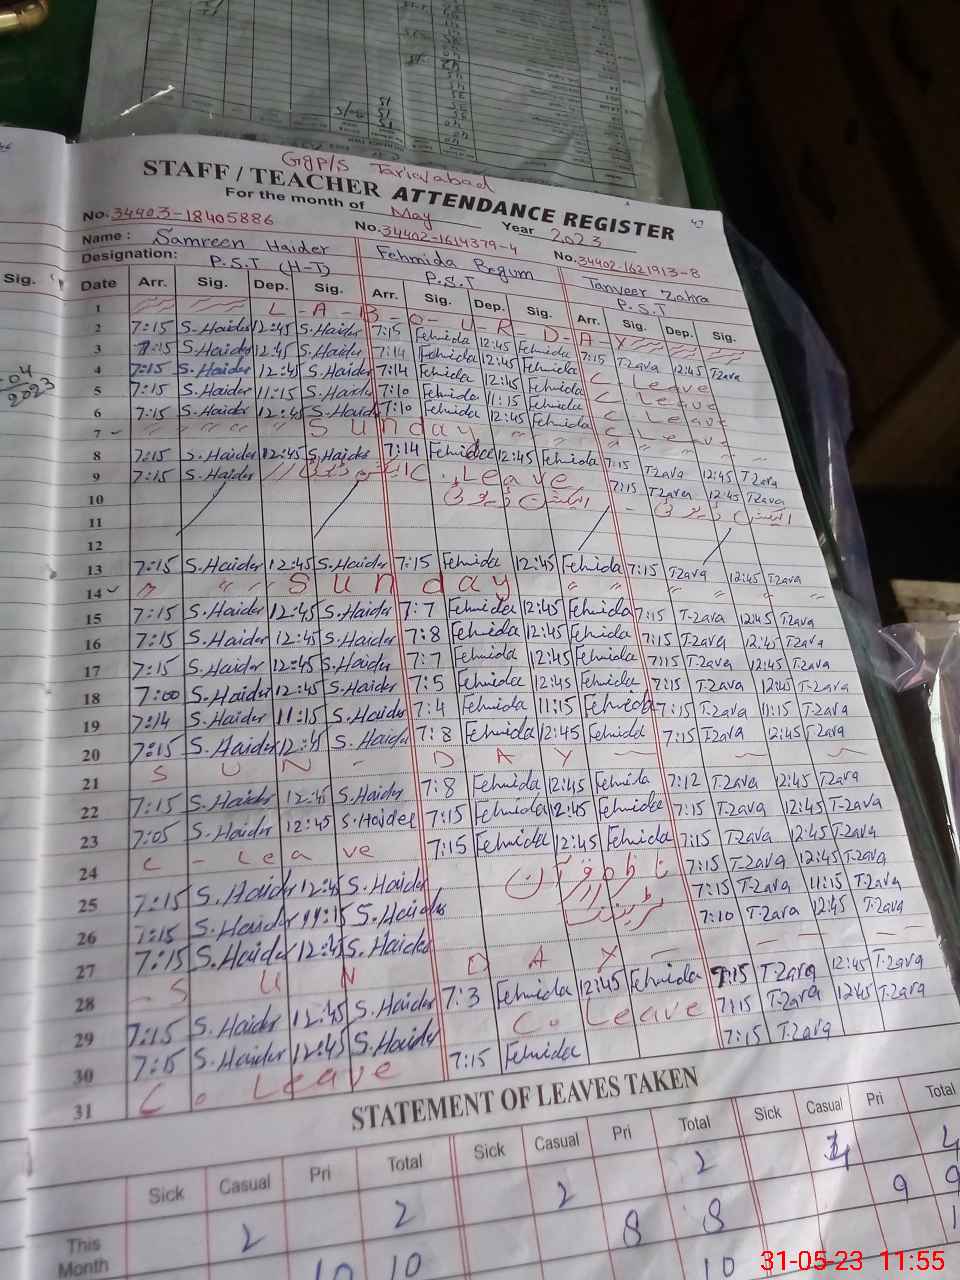 GgP/S Tariqabad
STAFF / TEACHER ATTENDANCE REGISTER
For the month of May Year 2023
No. 34403-18405886 No. 34402-1614379-4 No. 34402-1621913-8
Name: Samreen Haider Fehmida Begum Tanveer Zahra
Designation: P.S.T (H-T) P.S.T P.S.T
Date Arr. Sig. Dep. Sig. Arr. Sig. Dep. Sig. Arr. Sig. Dep. Sig.
1 L-A-B-O-U-R-D-A-Y
2 7:15 S.Haider 12:45 S.Haider 7:15 Fehmida 12:45 Fehmida 7:15 T.Zara 12:45 T.Zara
3 7:15 S.Haider 12:45 S.Haider 7:14 Fehmida 12:45 Fehmida C Leave
4 7:15 S.Haider 12:45 S.Haider 7:14 Fehmida 12:45 Fehmida C Leave
5 7:15 S.Haider 11:15 S.Haider 7:10 Fehmida 11:15 Fehmida C Leave
6 7:15 S.Haider 12:45 S.Haider 7:10 Fehmida 12:45 Fehmida C Leave
7 Sunday
8 7:15 S.Haider 12:45 S.Haider 7:14 Fehmida 12:45 Fehmida 7:15 T.Zara 12:45 T.Zara
9 7:15 S.Haider C. Leave 7:15 T.Zara 12:45 T.Zara
10 الیکشن ڈیوٹی الیکشن ڈیوٹی
11
12
13 7:15 S.Haider 12:45 S.Haider 7:15 Fehmida 12:45 Fehmida 7:15 T.Zara 12:45 T.Zara
14 Sunday
15 7:15 S.Haider 12:45 S.Haider 7:7 Fehmida 12:45 Fehmida 7:15 T.Zara 12:45 T.Zara
16 7:15 S.Haider 12:45 S.Haider 7:8 Fehmida 12:45 Fehmida 7:15 T.Zara 12:45 T.Zara
17 7:15 S.Haider 12:45 S.Haider 7:7 Fehmida 12:45 Fehmida 7:15 T.Zara 12:45 T.Zara
18 7:00 S.Haider 12:45 S.Haider 7:5 Fehmida 12:45 Fehmida 7:15 T.Zara 12:45 T.Zara
19 7:14 S.Haider 11:15 S.Haider 7:4 Fehmida 11:15 Fehmida 7:15 T.Zara 11:15 T.Zara
20 7:15 S.Haider 12:45 S.Haider 7:8 Fehmida 12:45 Fehmida 7:15 T.Zara 12:45 T.Zara
21 SUN-DAY
22 7:15 S.Haider 12:45 S.Haider 7:8 Fehmida 12:45 Fehmida 7:12 T.Zara 12:45 T.Zara
23 7:05 S.Haider 12:45 S.Haider 7:15 Fehmida 12:45 Fehmida 7:15 T.Zara 12:45 T.Zara
24 C-Leave 7:15 Fehmida 12:45 Fehmida 7:15 T.Zara 12:45 T.Zara
25 7:15 S.Haider 12:45 S.Haider ناظرہ قرآن 7:15 T.Zara 12:45 T.Zara
26 7:15 S.Haider 11:15 S.Haider ٹریننگ 7:15 T.Zara 11:15 T.Zara
27 7:15 S.Haider 12:45 S.Haider 7:10 T.Zara 12:45 T.Zara
28 -SUN DAY-
29 7:15 S.Haider 12:45 S.Haider 7:3 Fehmida 12:45 Fehmida 7:15 T.Zara 12:45 T.Zara
30 7:15 S.Haider 12:45 S.Haider C. Leave 7:15 T.Zara 12:45 T.Zara
31 C. Leave 7:15 Fehmida 7:15 T.Zara
STATEMENT OF LEAVES TAKEN
Sick Casual Pri Total Sick Casual Pri Total Sick Casual Pri Total
This Month 2 2 2 2 4 4
10 10 8 8 9 9
10
Sig.
04
2023
31-05-23 11:55